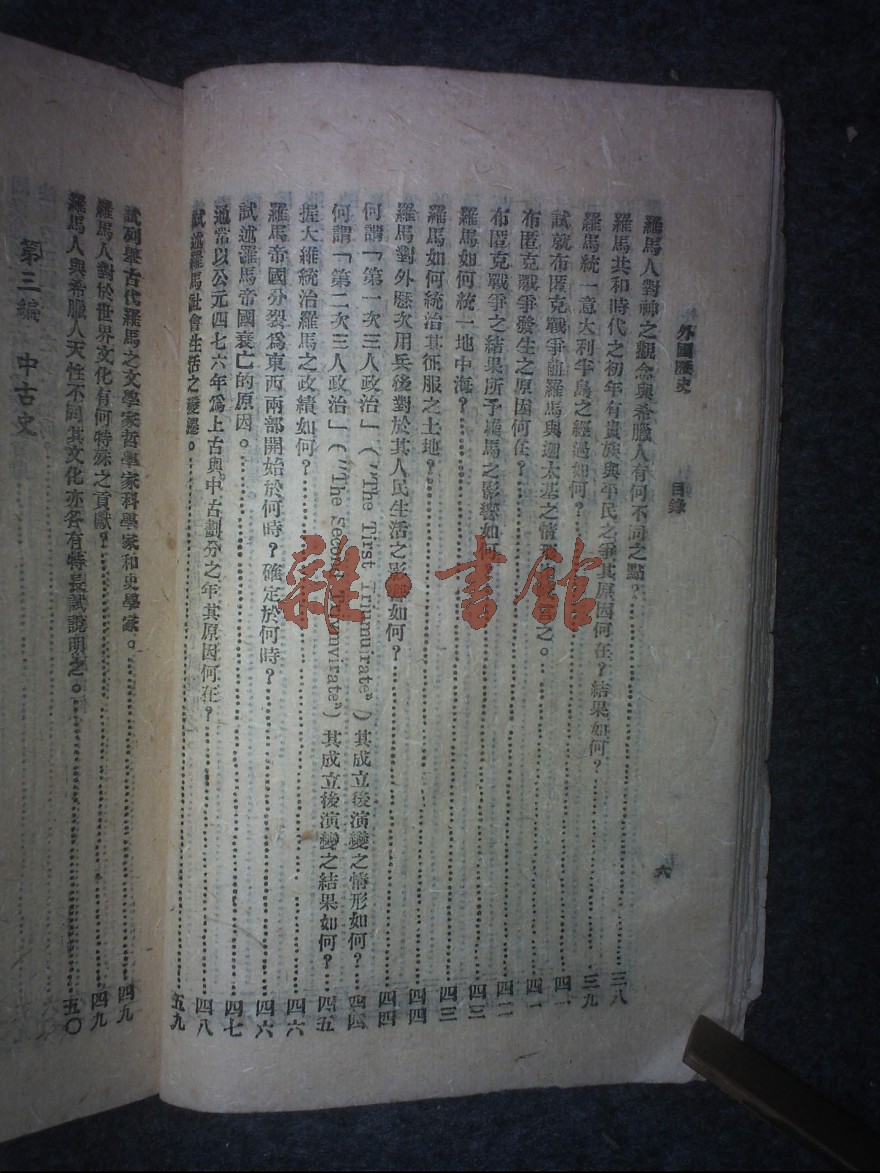 外國歷史
目錄
六
羅馬人對神之觀念與希臘人有何不同之點?……三八
羅馬共和時代之初年有貴族與平民之爭其原因何在?結果如何?……三九
羅馬統一意大利半島之經過如何?……四一
試就布匿克戰爭前羅馬與迦太基之情形之。……四一
布匿克戰爭發生之原因何在?……四二
布匿克戰爭之結果所予羅馬之影響如何……四三
羅馬如何統一地中海?……四三
羅馬如何統治其征服之土地?……四四
羅馬對外歷次用兵後對於其人民生活之影響如何?……四四
何謂「第一次三人政治」("The Tirst Triumuirate")其成立後演變之情形如何?……四四
何謂「第二次三人政治」("The Second Triumvirate")其成立後演變之結果如何?……四五
握大維統治羅馬之政績如何?……四六
羅馬帝國分裂爲東西兩部開始於何時?確定於何時?……四六
試述羅馬帝國衰亡的原因。……四七
通常以公元四七六年爲上古與中古劃分之年其原因何在?……四八
試述羅馬社會生活之變遷。……五九
試列舉古代羅馬之文學家哲學家科學家和史學家。……四九
羅馬人對於世界文化有何特殊之貢獻?……四九
羅馬人與希臘人天性不同其文化亦各有特長試說明之。……五〇
第三編 中古史
雜·書館